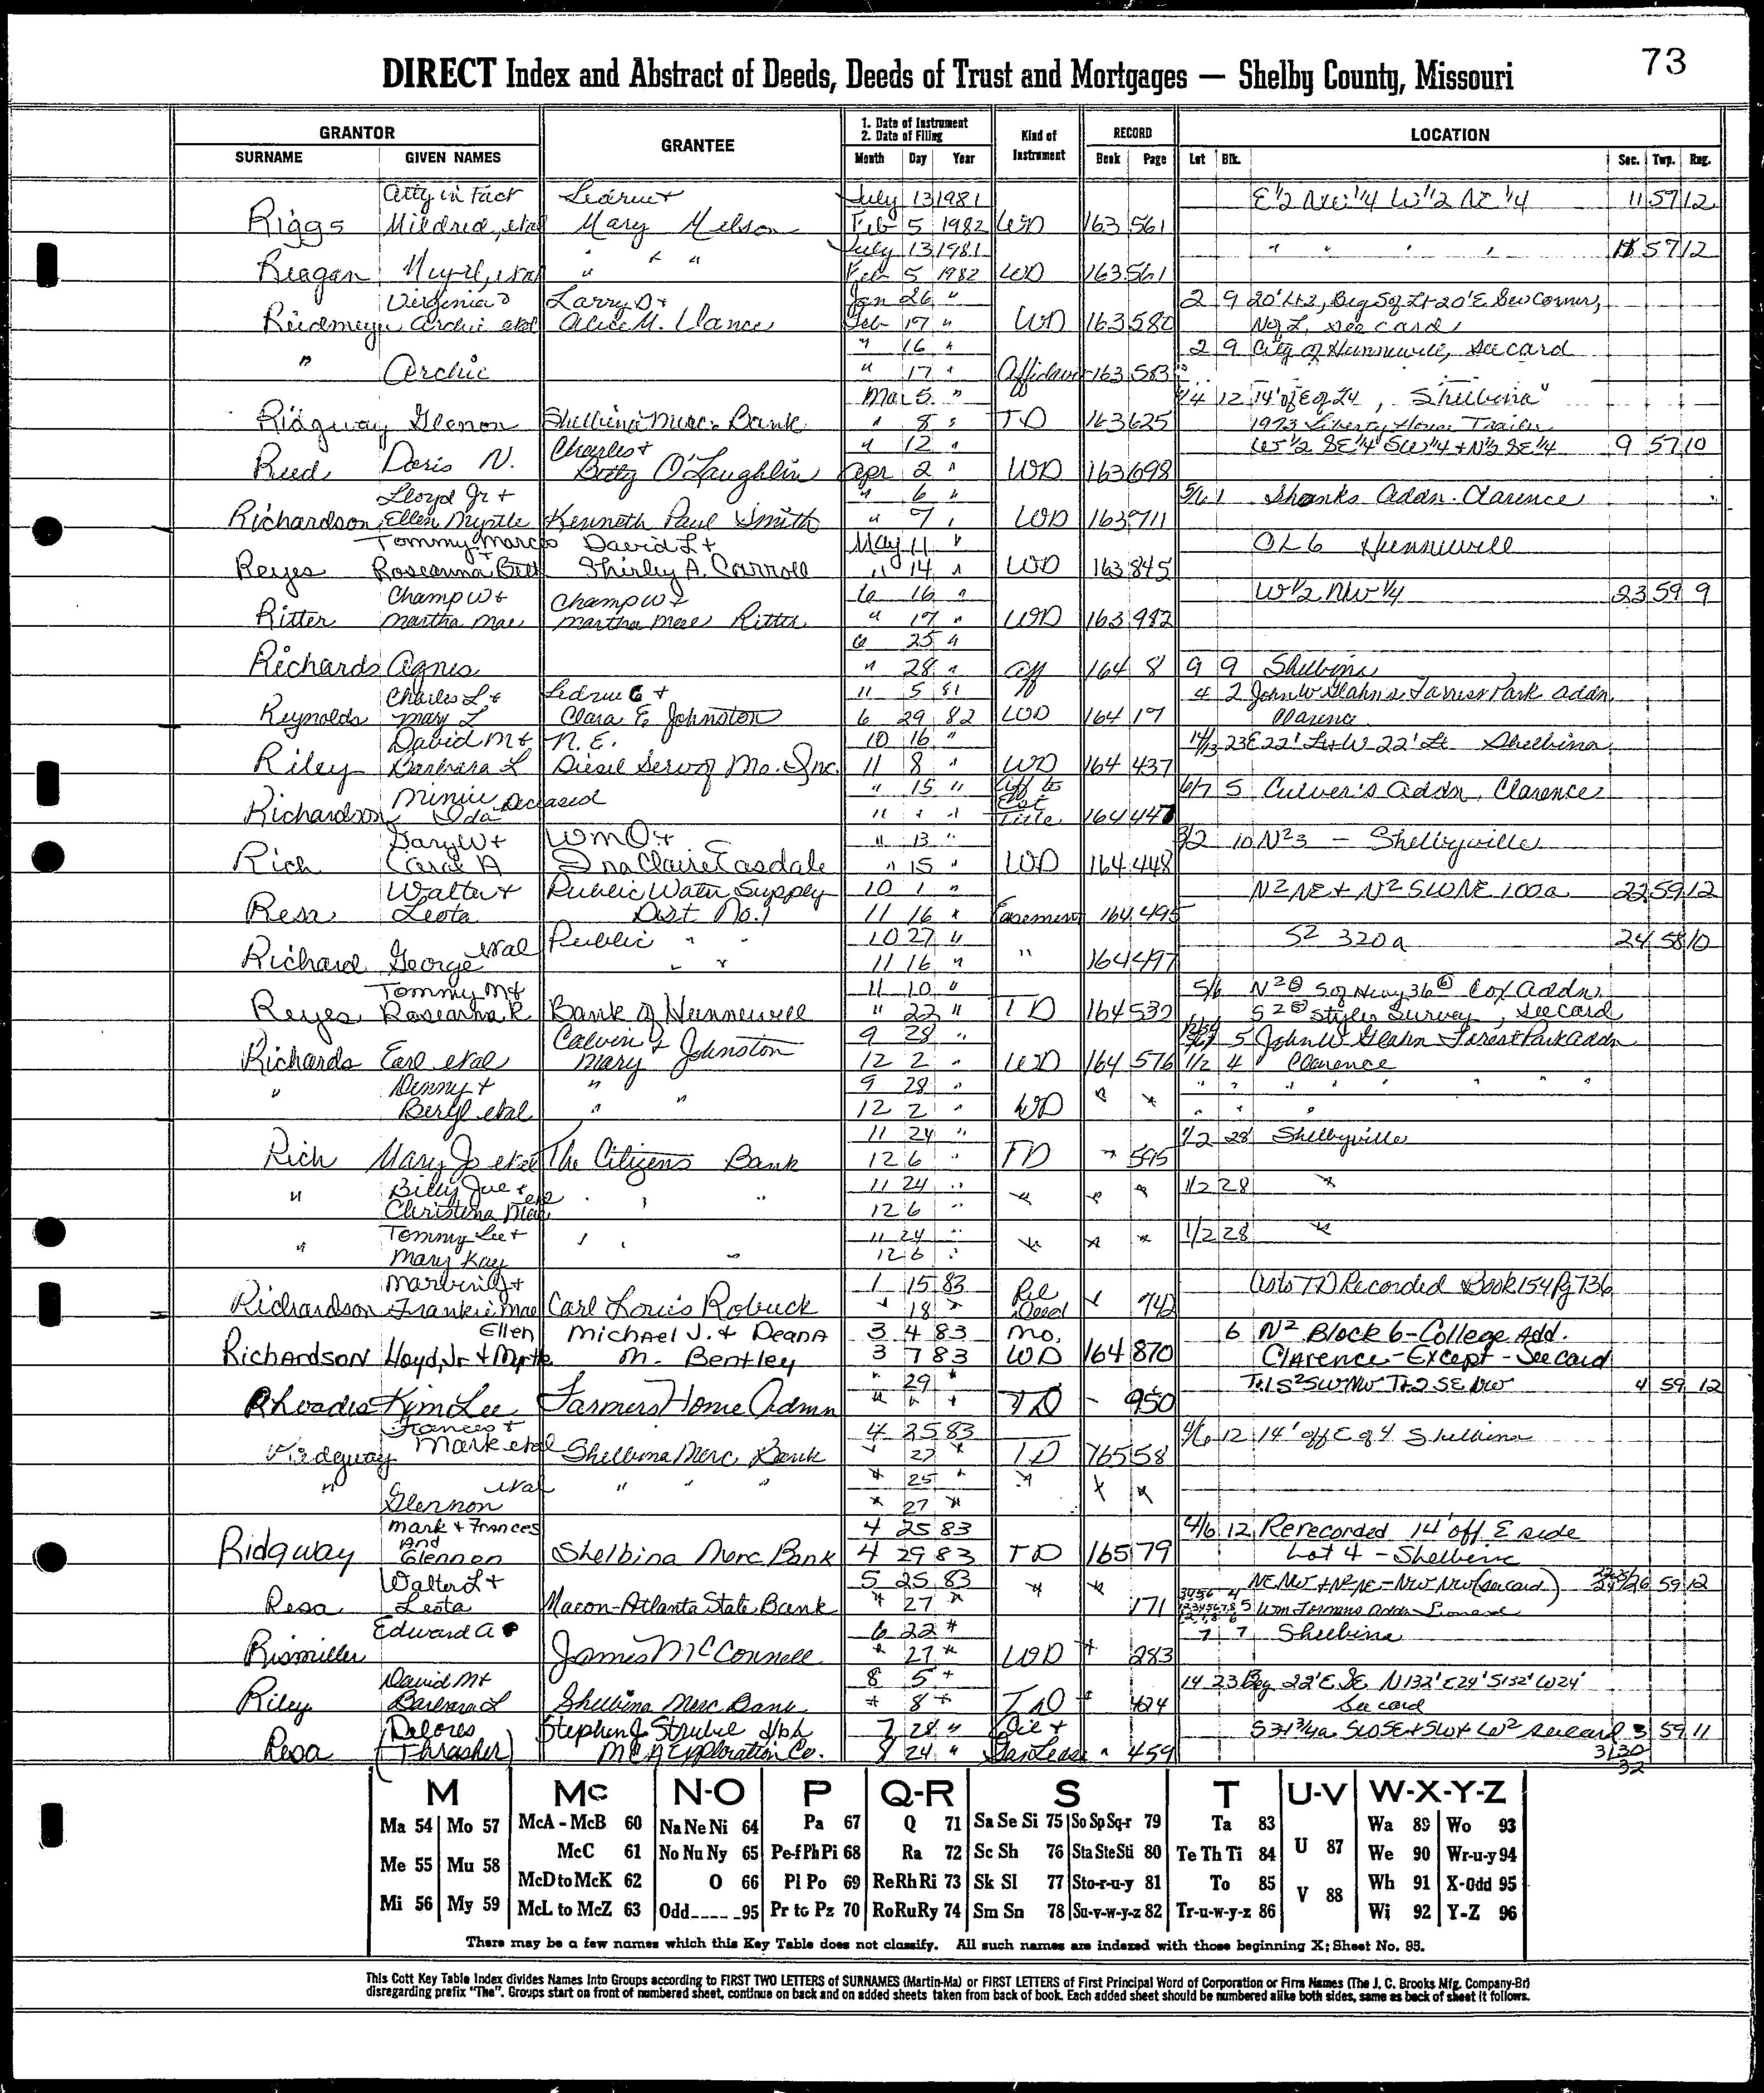 73
DIRECT Index and Abstract of Deeds, Deeds of Trust and Mortgages — Shelby County, Missouri
GRANTOR GRANTEE 1. Date of Instrument 2. Date of Filing Kind of Instrument RECORD LOCATION
SURNAME GIVEN NAMES Month Day Year Book Page Lot Blk. Sec. Twp. Rng.
Atty in Fact July 13 1981 E 1/2 1/4 W 1/2 NE 1/4 11 57 12
Riggs Mildred, etal Mary Melson Feb 5 1982 WD 163 561
July 13 1981 " " " " 57 12
Reagan " " " Feb 5 1982 WD 163 561
Virginia & Larry D & Jan 26 " 2 9 20'
Archie etal Alice M. Feb 17 " WD 163 580 see card
" 16 " 2 9 City of Hunnewell, see card
" Archie " 17 " 163 583
Mar 5 " 12 14' of E of L4, Shelbina
Ridgway Glenon Shelbina Merc. Bank " 8 " TD 163 625 1973 Liberty Home Trailer
Charles & " 12 " W 1/2 SE 1/4 SW 1/4 & N 1/2 SE 1/4 9 57 10
Reed Doris N. Betty O'Laughlin Apr 2 " WD 163 698
Lloyd Jr & " 6 " 5/6 1 Shanks Addn. Clarence
Richardson Ellen Myrtle Kenneth Paul Smith " 7 " WD 163 711
Tommy Marcos & David L & May 11 " OL 6 Hunnewell
Reyes Roseanna Shirley A. Carroll " 14 " WD 163 845
Champ W & Champ W & 6 16 " W 1/2 NW 1/4 23 59 9
Ritter Martha Mae Martha Mae Ritter " 17 " WD 163 982
6 25 "
Richards Agnes " 28 " Aff 164 8 9 9 Shelbina
Charles L & Ledrue C & 11 5 81 4 2 John W Glahn's Forrest Park addn
Reynolds Mary L Clara E. Johnston 6 29 82 WD 164 17 Clarence
David M & N. E. 10 16 " 14/13 23 E 22' Lt & W 22' Lt Shelbina
Riley Barbara L Diesel Serv of Mo. Inc. 11 8 " WD 164 437
Minnie " 15 " Aff to 6/7 5 Culver's Addn, Clarence
Richardson Ida Deceased " " " Est Title 164 447
Gary W & Wm O & " 13 " 10 N2 3 - Shelbyville
Rich Carol A Ina Claire Easdale " 15 " WD 164 448
Walter & Public Water Supply 10 1 " N2 NE & N2 SWNE 100a 22 59 12
Resa Leota Dist No. 1 11 16 " Easement 164 495
etal Public " " 10 27 " S2 320a 24 58 10
Richard George " " 11 16 " " 164 497
Tommy M & 11 10 " 5/6 N2⑤ S of Hwy 36 ⑥ Cox Addn.
Reyes Roseanna R. Bank of Hunnewell " 22 " TD 164 532 S2⑤ Styles Survey, see card
Calvin & 9 28 " 5 John W Glahn Forest Park Addn
Richards Earl etal Mary Johnston 12 2 " WD 164 576 1/2 4 Clarence
" Denny & " 9 28 " " " " " " " " "
Beryl etal " " 12 2 " WD " " " " "
11 24 " 1/2 28 Shelbyville
Rich Mary Jo etal The Citizens Bank 12 6 " TD " 595
" Billy Joe & " " " 11 24 " " " " 1/2 28 "
Christina Mae etal 12 6
" Tommy Lee & " " " 11 24 " " " " 1/2 28 "
Mary Kay 12 6 "
Marvin & 1 15 83 Rel (as to TD Recorded Book 154 Pg 736
Richardson Frankie Mae Carl Louis Robuck " 18 " Deed " 742
Ellen Michael J. & Deana 3 4 83 Mo. 6 N2 Block 6 - College Add.
Richardson Lloyd, Jr & Myrtle M. Bentley 3 7 83 WD 164 870 Clarence - Except - See card
" 29 " Tr. 1 S2 SW NW Tr. 2 SE NW 4 59 12
Rhoades Kim Lee Farmers Home Admn " " " TD - 950
Frances & 4 25 83 4/6 12 14' off E of 4 Shelbina
Ridgway Mark etal Shelbina Merc. Bank " 27 " TD 165 58
" etal " " " " 25 " " " "
Glennon " 27 "
Mark & Frances 4 25 83 4/6 12 Rerecorded 14' off E side
Ridgway And Glennon Shelbina Merc Bank 4 29 83 TD 165 79 Lot 4 - Shelbina
Walter L & 5 25 83 " " NE NW & N2 NE - NW NW (see card) 59 12
Resa Leota Macon-Atlanta State Bank " 27 " 171
Edward A 6 22 " 7 7 Shelbina
Rismiller James McConnell " 27 " WD " 283
David M & 8 5 " 14 23 Beg 22' E SE N 132' E 24' S 132' W 24'
Riley Barbara L Shelbina Merc Bank " 8 " TD " 424 See card
Delores Stephen J. Strubel dba 7 28 " Oil & see card 3 59 11
Resa (Thrasher) Exploration Co. 8 24 " Gas Lease " 459 31 30
32
M Mc N-O P Q-R S T U-V W-X-Y-Z
Ma 54 Mo 57 McA - McB 60 Na Ne Ni 64 Pa 67 Q 71 Sa Se Si 75 So Sp Sq-r 79 Ta 83 Wa 89 Wo 93
Me 55 Mu 58 McC 61 No Nu Ny 65 Pe-f Ph Pi 68 Ra 72 Sc Sh 76 Sta Ste Sti 80 Te Th Ti 84 U 87 We 90 Wr-u-y 94
McD to McK 62 O 66 Pl Po 69 Re Rh Ri 73 Sk Sl 77 Sto-r-u-y 81 To 85 V 88 Wh 91 X-Odd 95
Mi 56 My 59 McL to McZ 63 Odd_____95 Pr to Pz 70 Ro Ru Ry 74 Sm Sn 78 Su-v-w-y-z 82 Tr-u-w-y-z 86 Wi 92 Y-Z 96
There may be a few names which this Key Table does not classify. All such names are indexed with those beginning X; Sheet No. 95.
This Cott Key Table Index divides Names Into Groups according to FIRST TWO LETTERS of SURNAMES (Martin-Ma) or FIRST LETTERS of First Principal Word of Corporation or Firm Names (The J. C. Brooks Mfg. Company-Br)
disregarding prefix "The". Groups start on front of numbered sheet, continue on back and on added sheets taken from back of book. Each added sheet should be numbered alike both sides, same as back of sheet it follows.